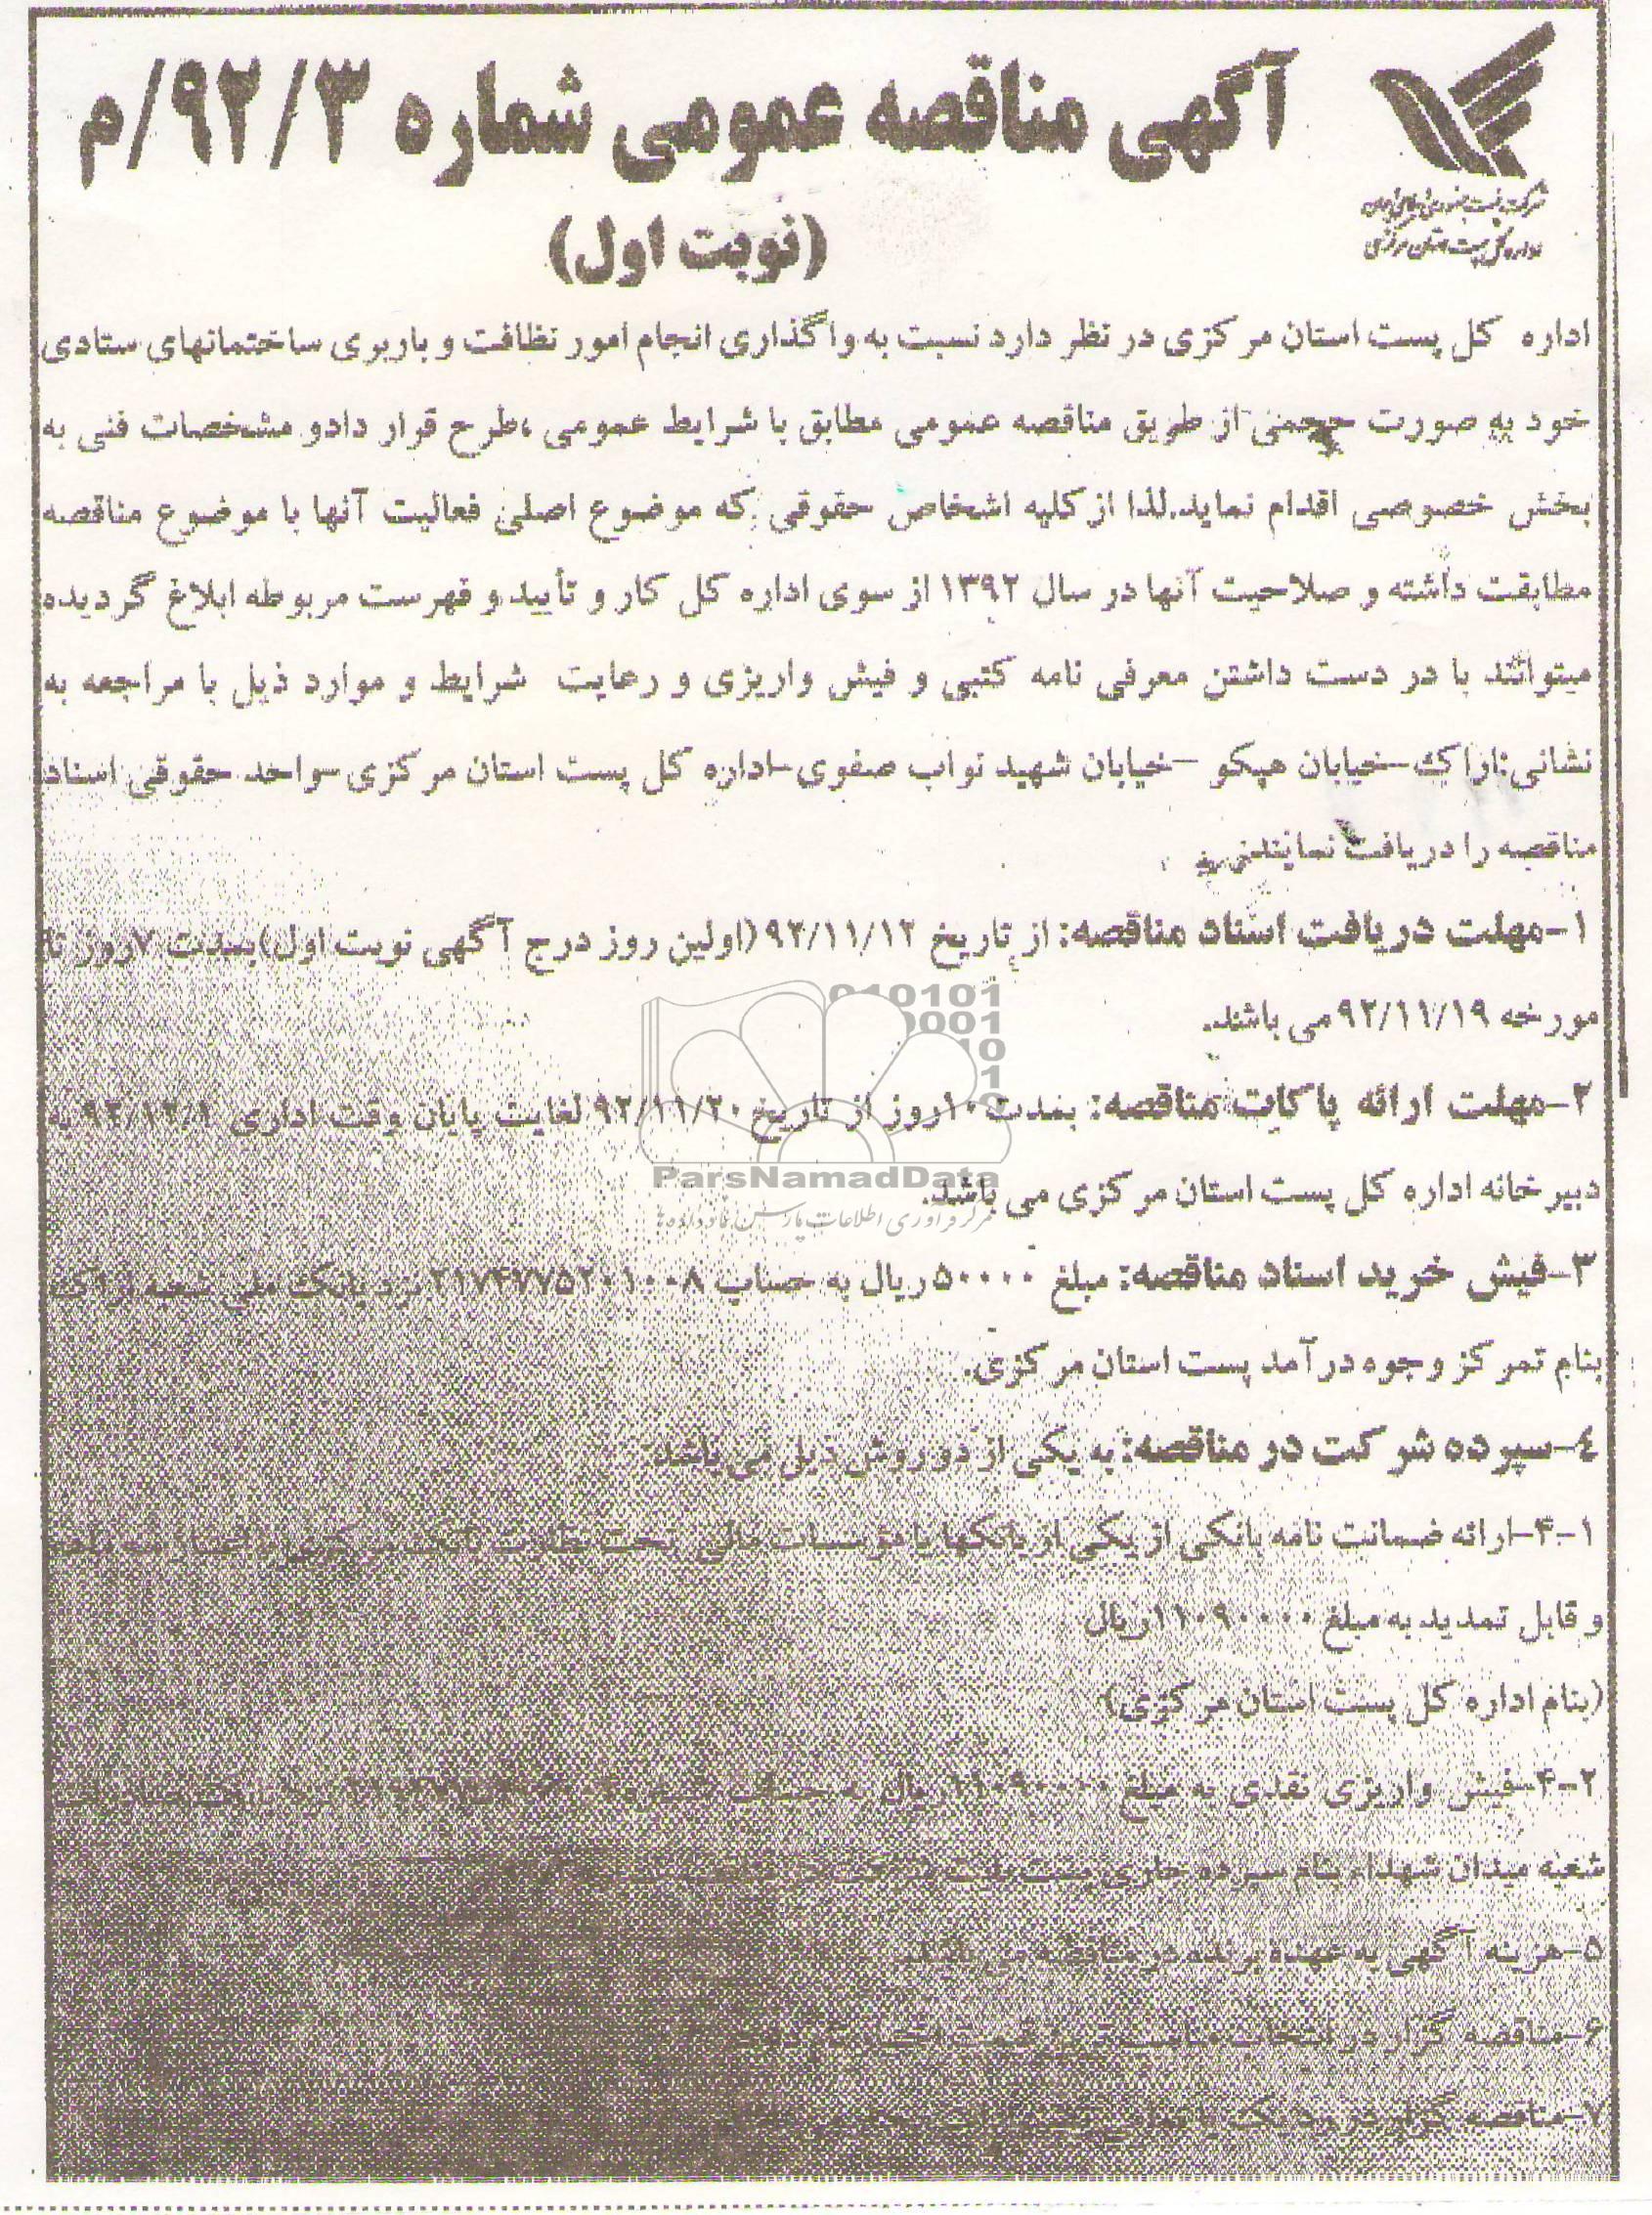 آگهی مناقصه عمومی شماره ۹۲/۳/م
(نوبت اول)
اداره کل پست استان مرکزی
اداره کل پست استان مرکزی در نظر دارد نسبت به واگذاری انجام امور نظافت و باربری ساختمانهای ستادی
خود به صورت حجمی از طریق مناقصه عمومی مطابق با شرایط عمومی ،طرح قرار دادو مشخصات فنی به
بخش خصوصی اقدام نماید.لذا از کلیه اشخاص حقوقی که موضوع اصلی فعالیت آنها با موضوع مناقصه
مطابقت داشته و صلاحیت آنها در سال ۱۳۹۲ از سوی اداره کل کار و تأیید و فهرست مربوطه ابلاغ گردیده
میتوانند با در دست داشتن معرفی نامه کتبی و فیش واریزی و رعایت شرایط و موارد ذیل با مراجعه به
نشانی:اراک-خیابان هپکو -خیابان شهید نواب صفوی-اداره کل پست استان مرکزی-واحد حقوقی اسناد
مناقصه را دریافت نمایند
۱-مهلت دریافت اسناد مناقصه: از تاریخ ۹۲/۱۱/۱۲ (اولین روز درج آگهی نوبت اول)بمدت ۷روز تا
مورخه ۹۲/۱۱/۱۹ می باشد.
۲-مهلت ارائه پاکات مناقصه: بمدت ۱۰روز از تاریخ ۹۲/۱۱/۲۰ لغایت پایان وقت اداری ۹۲/۱۲/۱ به
دبیرخانه اداره کل پست استان مرکزی می باشد.
010101
0001
10
1
ParsNamadData
مرکز فرآوری اطلاعات پارس نماد داده ها
۳-فیش خرید اسناد مناقصه: مبلغ ۵۰۰۰۰ ریال به حساب ۲۱۷۴۷۷۵۲۰۱۰۰۸ نزد بانک ملی شعبه اراک
بنام تمرکز وجوه درآمد پست استان مرکزی.
۴-سپرده شرکت در مناقصه: به یکی از دو روش ذیل می باشد:
۱-۴-ارائه ضمانت نامه بانکی از یکی از بانکها یا مؤسسات مالی تحت نظارت بانک مرکزی با اعتبار سه ماهه
و قابل تمدید به مبلغ ۱۱۰۹۰۰۰۰ ریال
(بنام اداره کل پست استان مرکزی)
۲-۴-فیش واریزی نقدی به مبلغ ۱۱۰۹۰۰۰۰ ریال به حساب
شعبه میدان شهدا بنام سپرده
۵-هزینه آگهی به عهده برنده در مناقصه می باشد
۶-مناقصه گزار در انتخاب
۷-مناقصه گزار در رد یک یا